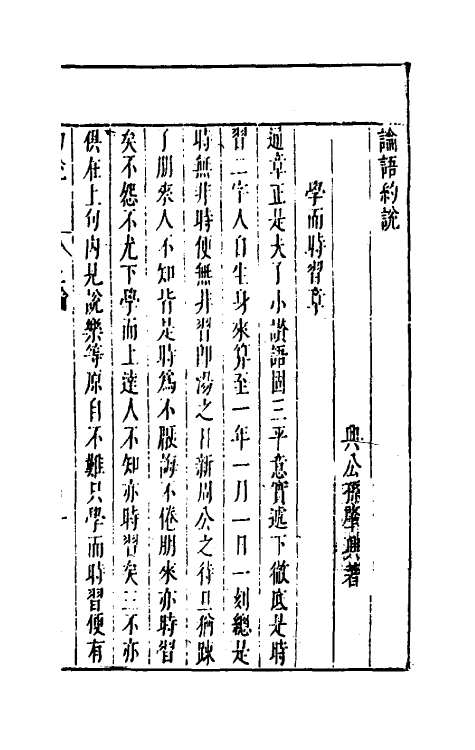 論語約說
興公孫肇興著
學而時習章
通章正是夫子小讚語圖三平意實遞下徹底是時
習二字人自生身來算至一年一月一日一刻總是
時無非時便無非習卽湯之日新周公之待旦猶踈
了朋來人不知皆是時為不厭誨不倦朋來亦時習
矣不怨不尤下學而上達人不知亦時習矣三不亦
俱在上句內見說樂等原自不難只學而時習便有